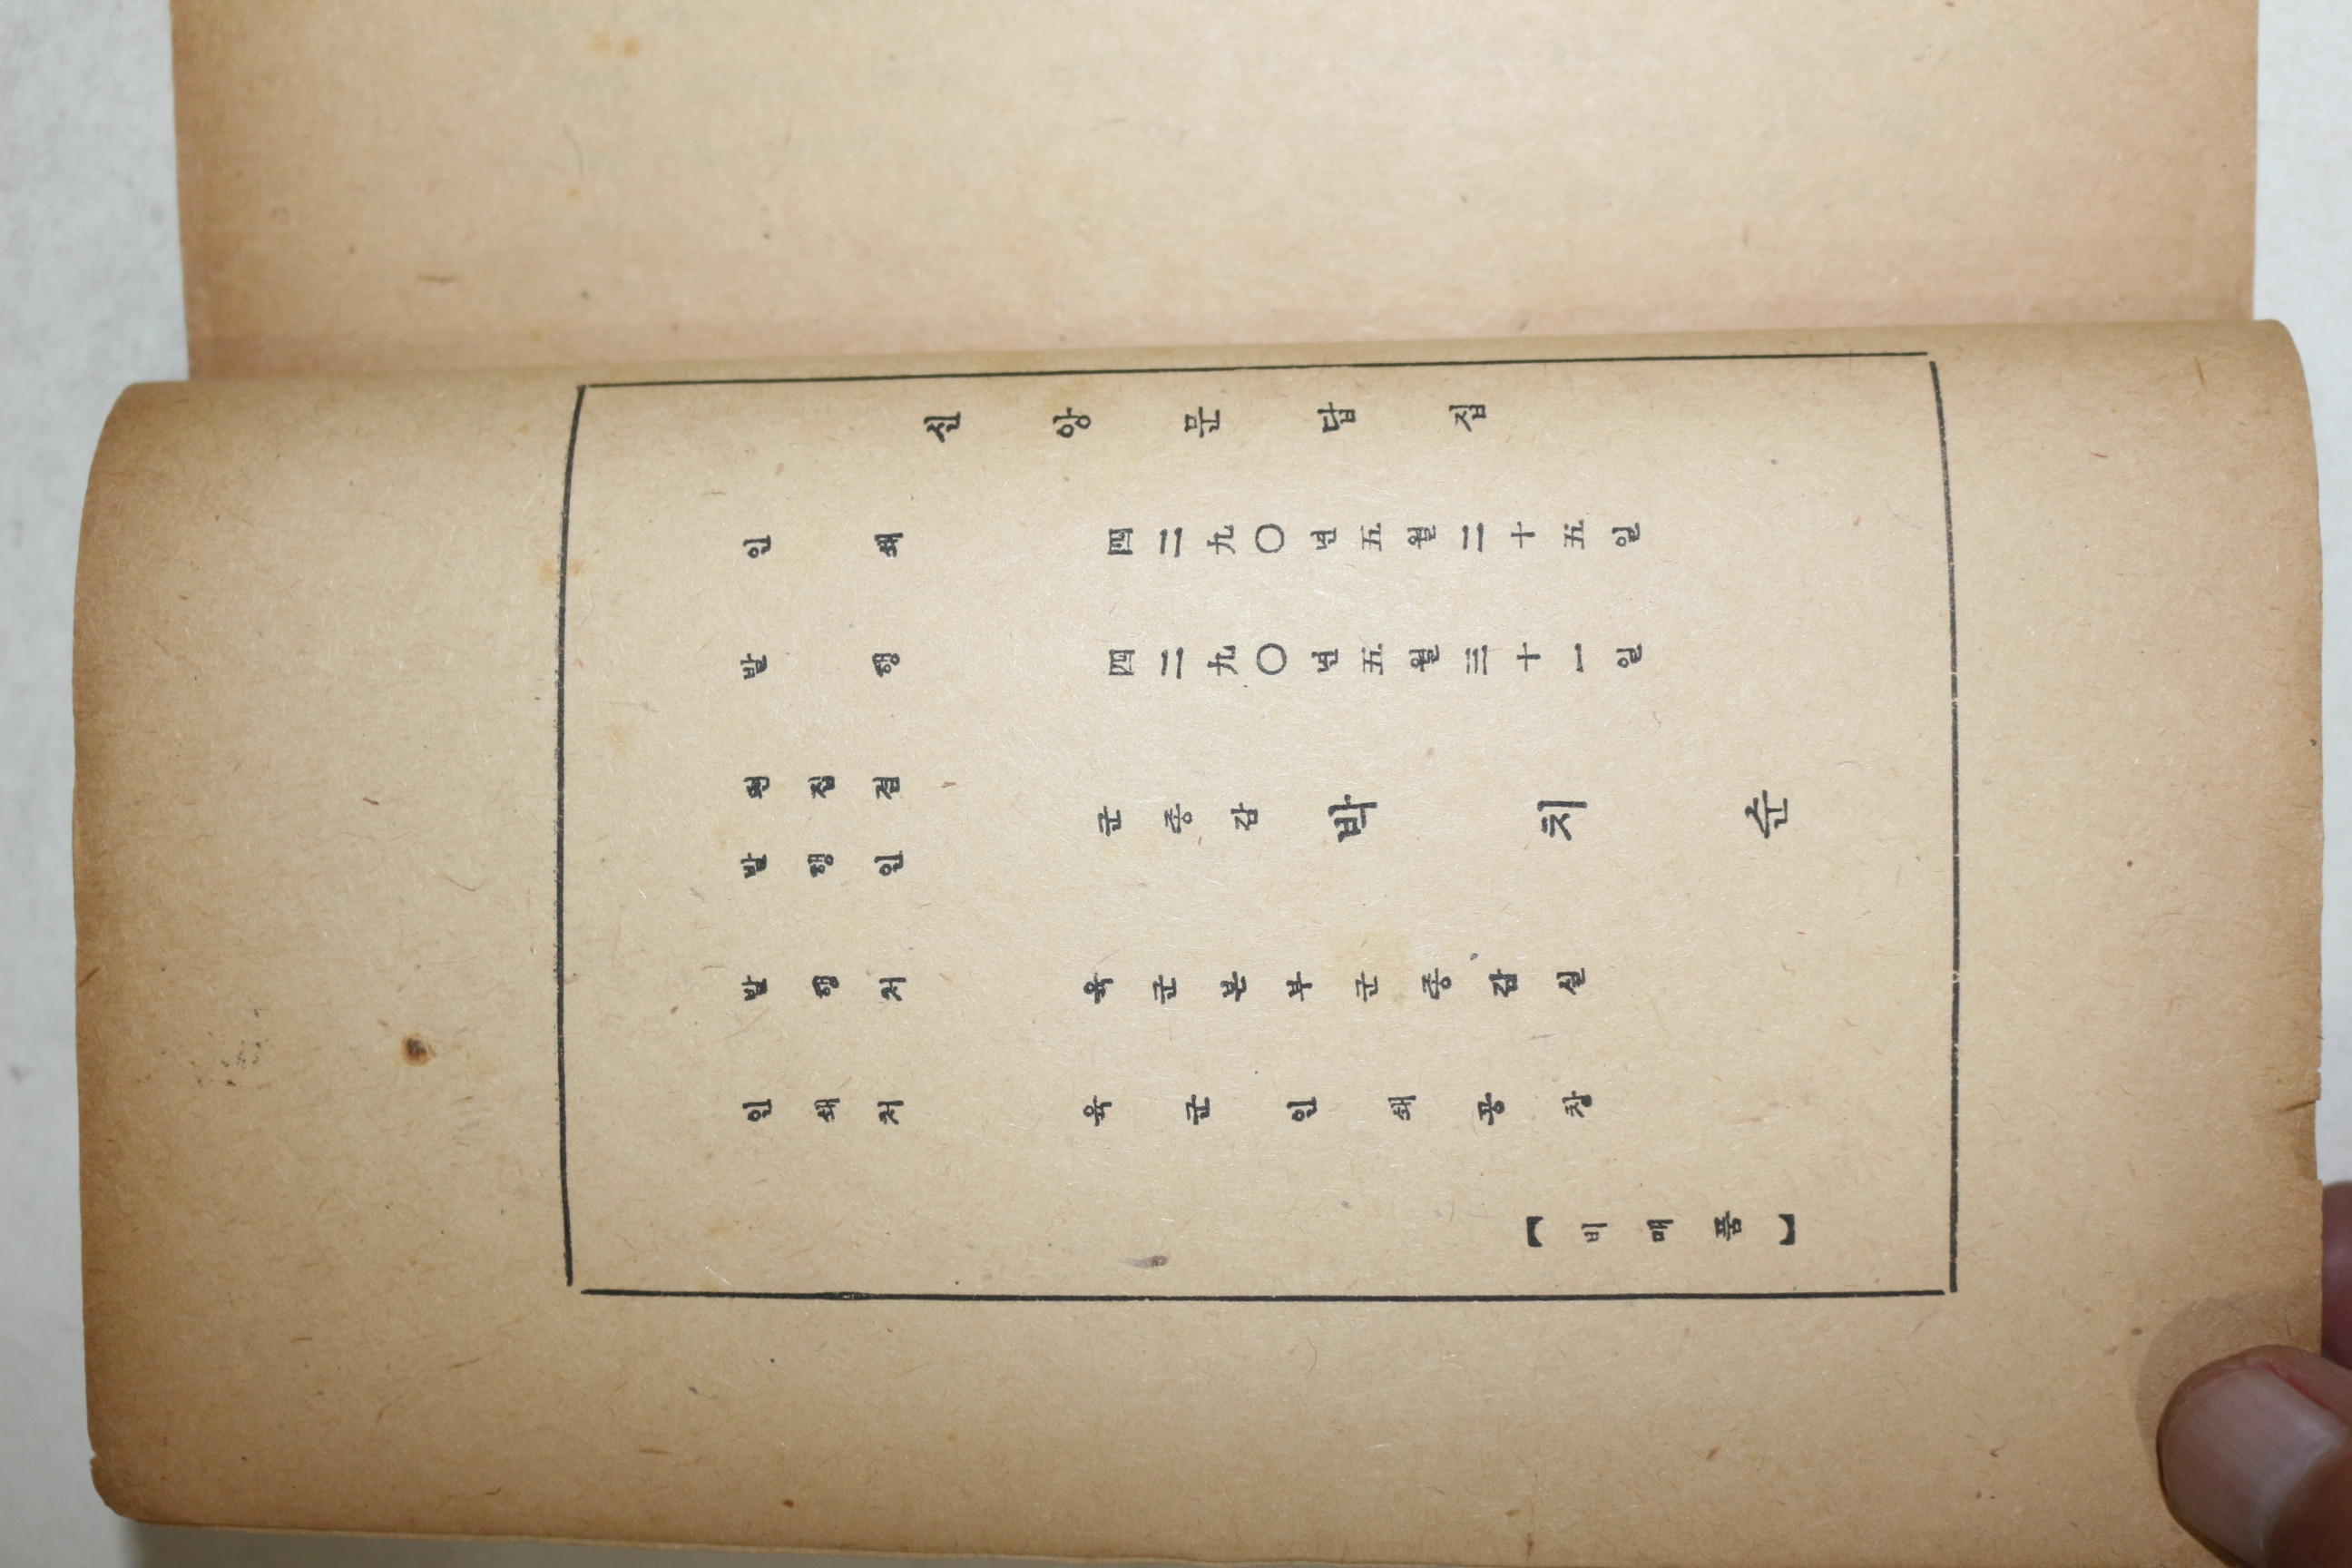 신앙문답집
인쇄 四二九〇년五월二十五일
발행 四二九〇년五월三十一일
편집겸
발행인 군종감 박치순
발행처 육군본부군종감실
인쇄처 육군인쇄공창
【비매품】